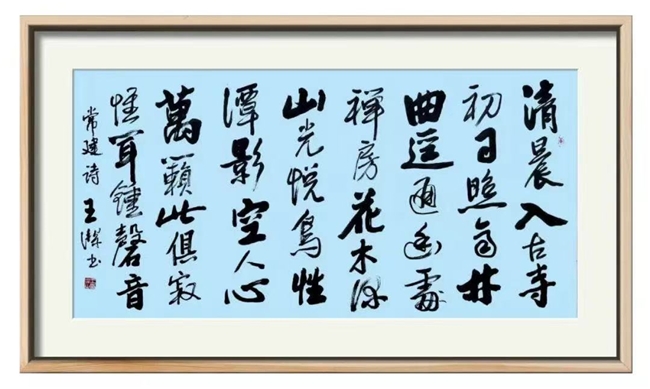 清晨入古寺
初日照高林
曲逕通幽處
禪房花木深
山光悦鳥性
潭影空人心
萬籟此俱寂
惟聞鍾磬音
常建诗 王书